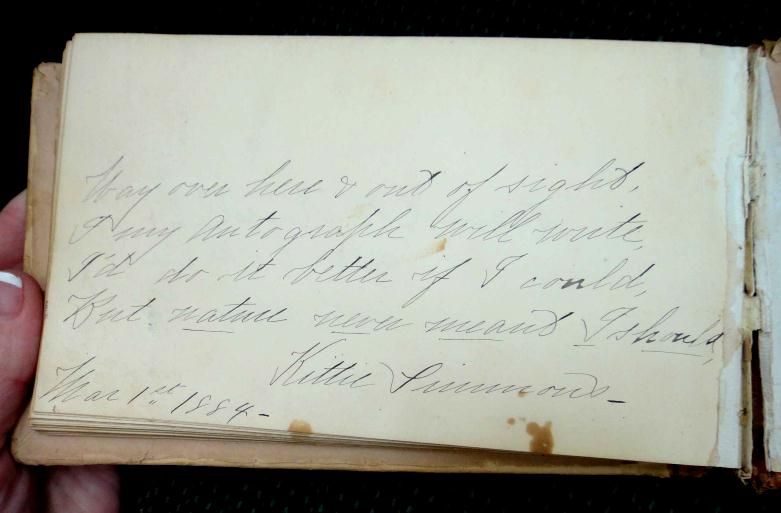 Way over here & out of sight,
I my Autograph will write,
I'd do it better if I could,
But nature never meant I should,
Kittie Simmons-
Mar 1st 1884-